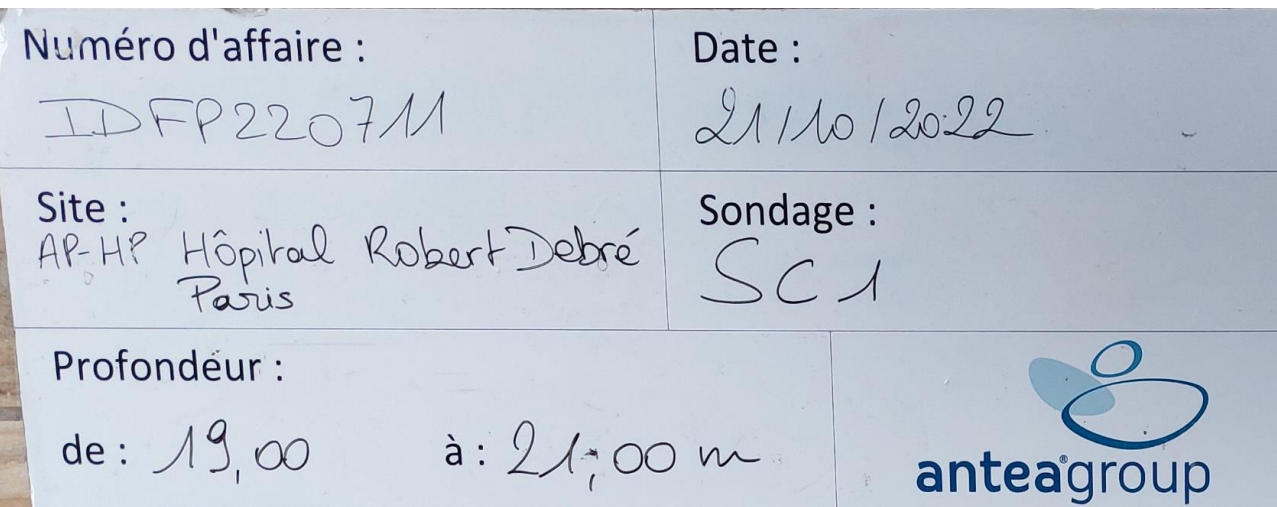 Numéro d'affaire :
IDFP220711
Date :
21/10/2022
Site :
AP-HP Hôpital Robert Debré
Paris
Sondage :
SC1
Profondeur :
de : 19,00 à : 21,00 m
anteagroup